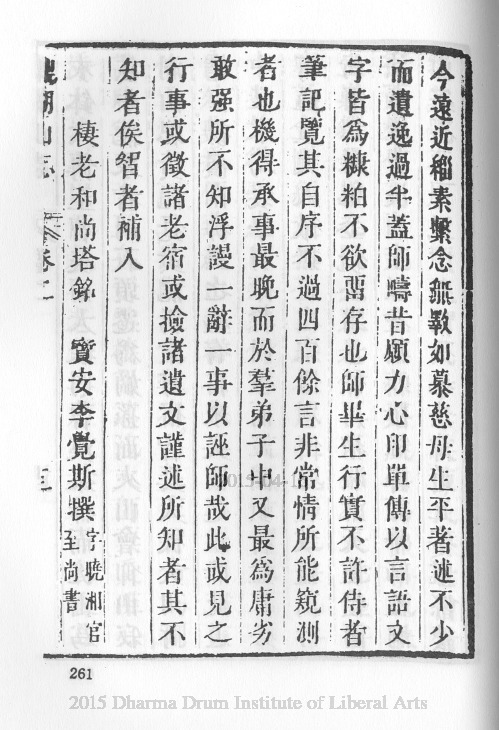 今遠近緇素繫念無斁如慕慈母生平著述不少
而遺逸過半蓋師疇昔願力心印單傳以言語文
字皆為糠粕不欲畱存也師畢生行實不許侍者
筆記覽其自序不過四百餘言非常情所能窺測
者也機得承事最晚而於羣弟子中又最為庸劣
敢强所不知浮謾一辭一事以誣師哉此或見之
行事或徵諸老宿或撿諸遺文謹述所知者其不
知者俟智者補入
棲老和尚塔銘 寶安李覺斯撰 字曉湘官至尚書
湖山志 卷二 三
261
2015 Dharma Drum Institute of Liberal Arts